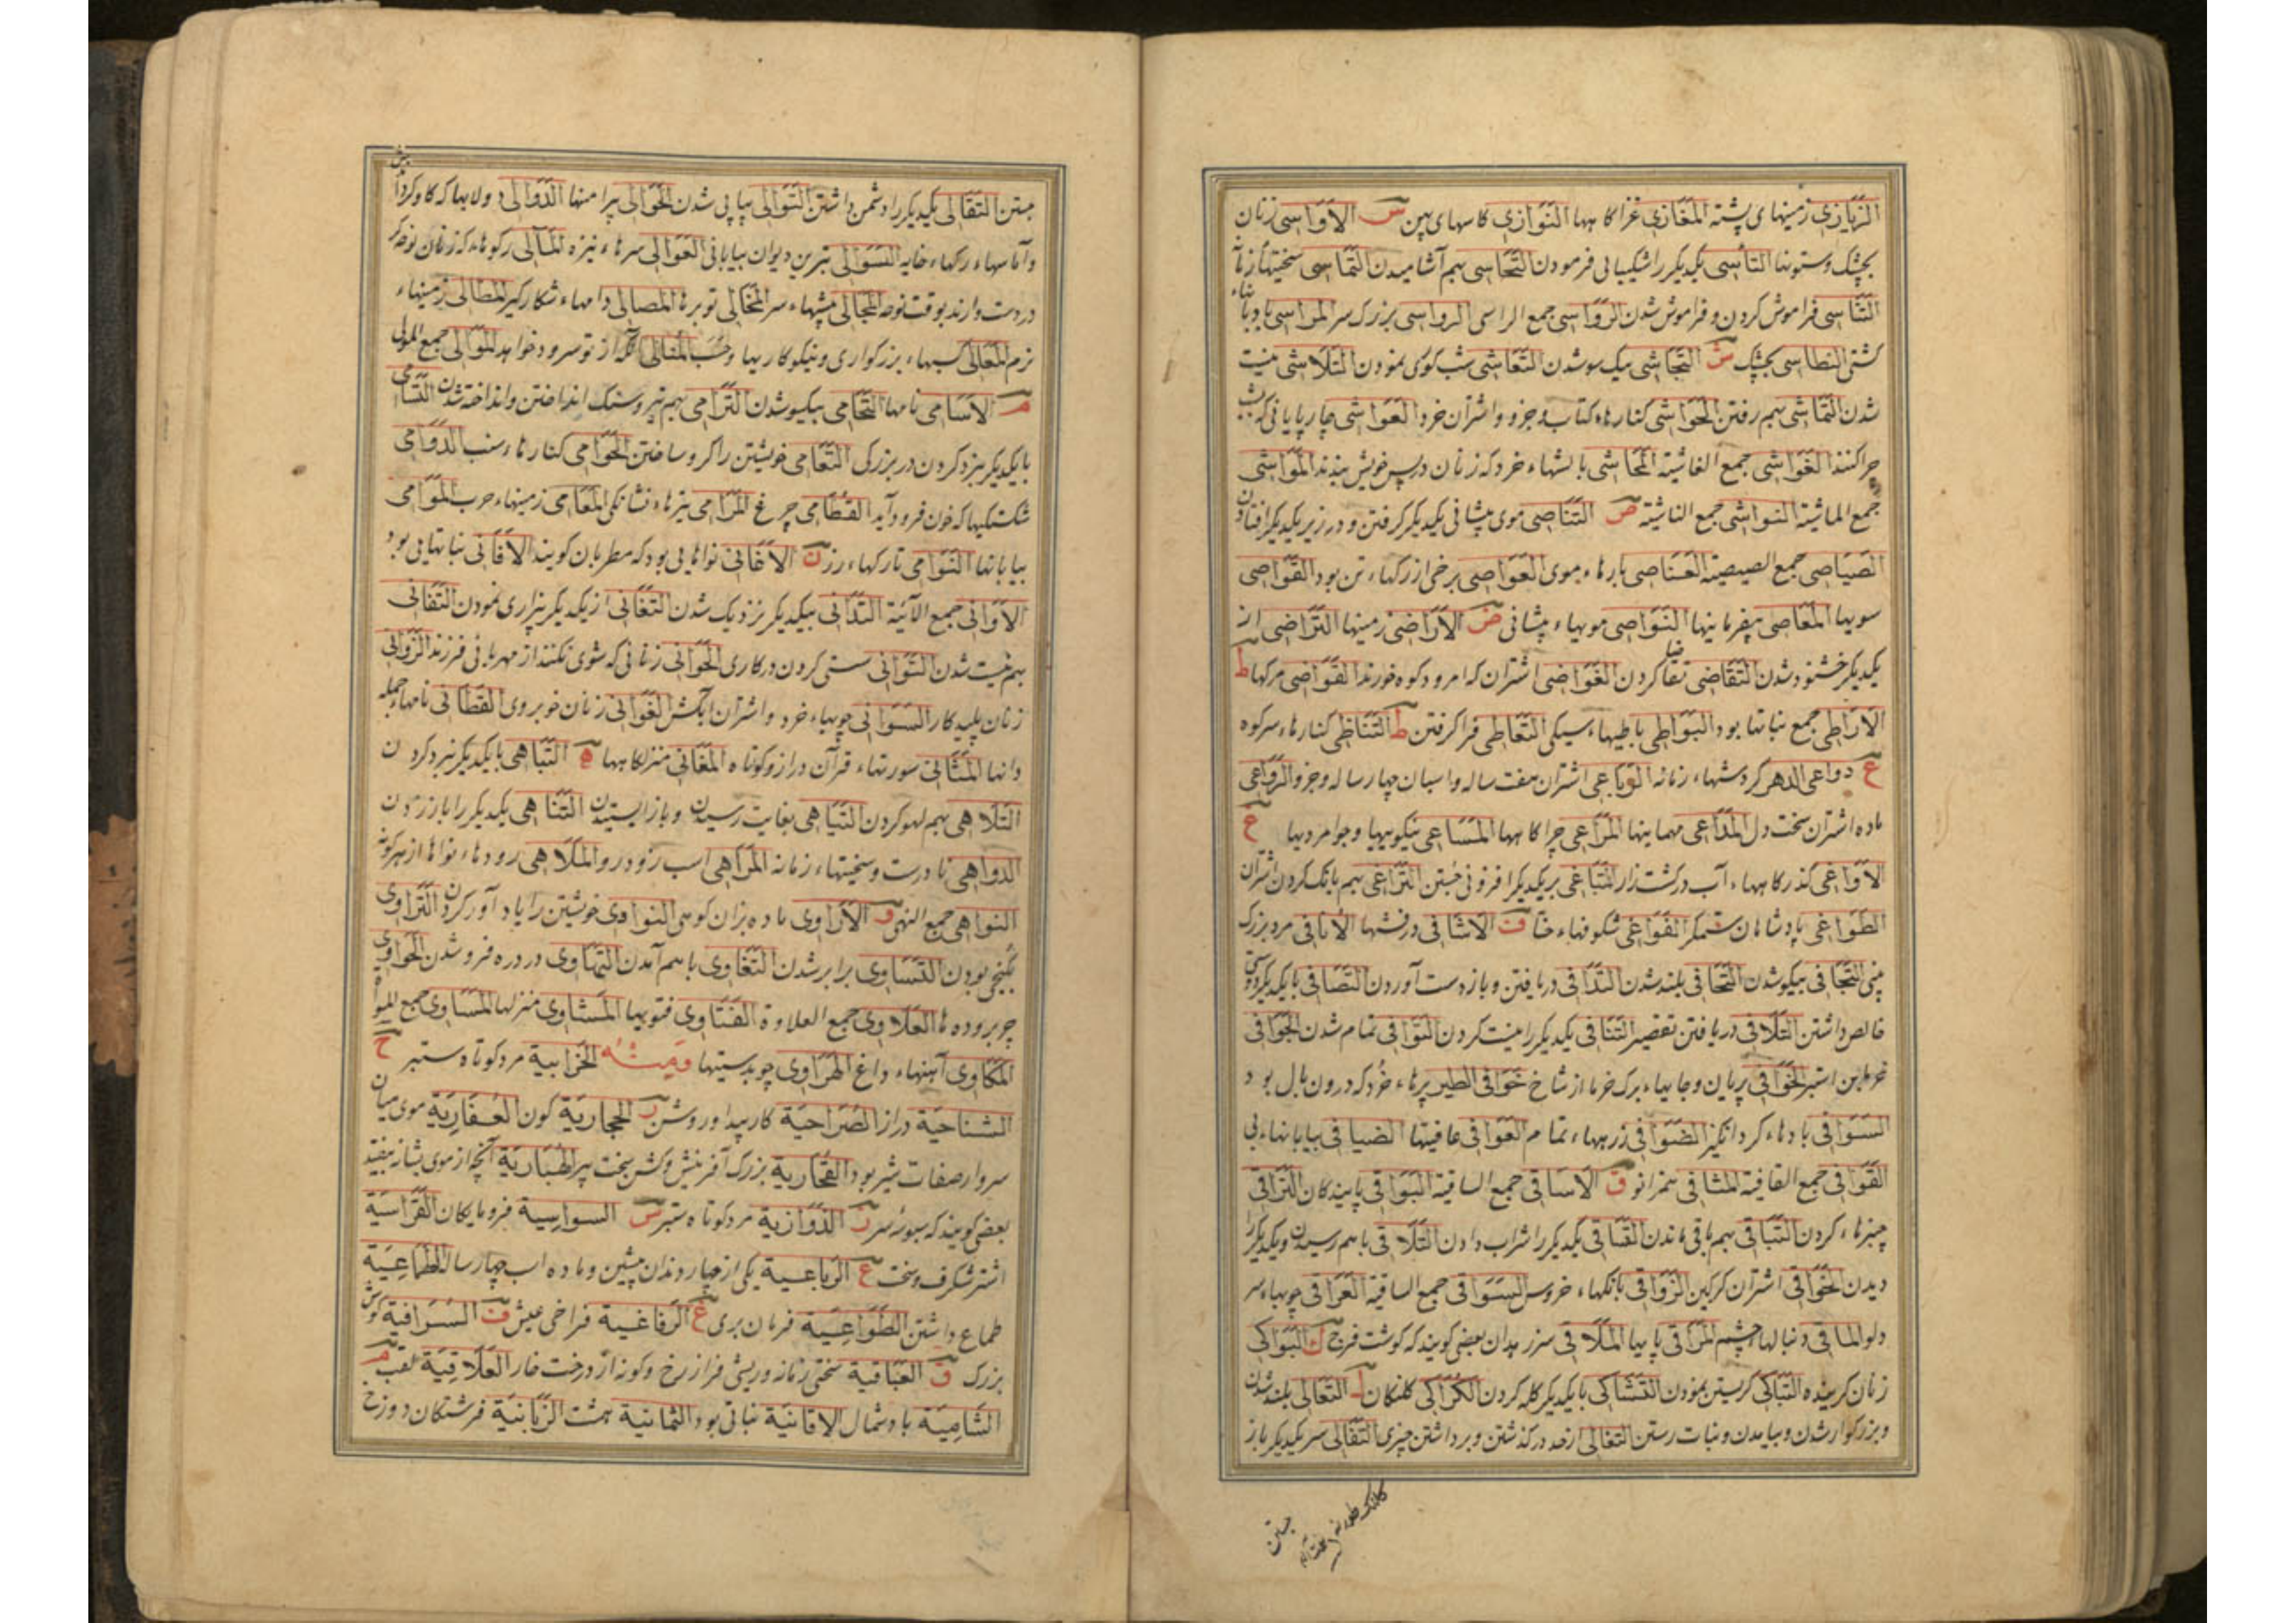 الزیازی زمینهای پشته المغازی غزاکا هها النوازی کاسهای پهن س الأواسی زنان
بجشک وستونها التأسی یکدیگر را شکیبایی فرمودن التحاسی بهم آشامیدن التماسی سختیها
التناسی فراموش کردن و فراموش شدن الرواسی جمع الراسی الرواسی بزرک سر المراسی
کشتی النطاسی بجشک ش التجاشی بیک سو شدن التعاشی شب کوری نمودن التلاشی نیست
شدن التماشی بهم رفتن الحواشی کنارهاء کتاب وجزو واشتران خرد العواشی چارپایانی که بشب
چرا کنند الغواشی جمع الغاشیة المحاشی بالشهاء خرد که زنان در پس خویش بندند المواشی
جمع الماشیة النواشی جمع الناشیة ص التناصی موی پیشانی یکدیگر کرفتن و در زیر یکدیگر افتادن
الصیاصی جمع الصیصیة العناصی پارهاء موی العواصی برخی از رکهاء تن بود القواصی
سویها المعاصی بیفرمانیها النواصی مویهاء پیشانی ض الأراضی زمینها التراضی از
یکدیگر خشنود شدن التقاضی تقاضا کردن الغواضی اشتران که امرود کوه خورند القواضی مرکها ط
الأراطی جمع نباتها بود البواطی باطیهاء سیکی التعاطی فرا کرفتن ظ التناظی کنارهاء سر کوه
ع دواعی الدهر کردشهاء زمانه الرباعی اشتران هفت ساله واسبان چهار ساله وجزو الرواعی
ماده اشتران سخت دل المداعی مهمانیها المراعی چراکاهها المساعی نیکوییها و جوامردیها غ
الأواغی کذرکاههاء آب در کشت زار التباغی بر یکدیگر افزونی جستن التراغی بهم بانک کردن اشتران
الطواغی پادشاهان ستمکر الفواغی شکوفهاء حنا ف الأشافی درفشها الأنافی مرد بزرک
بینی التجافی بیکسو شدن التحافی بلند شدن التدافی دریافتن و بازدست آوردن التصافی با یکدیگر دوستی
خالص داشتن التلافی دریافتن تقصیر التنافی یکدیگر را نیست کردن التوافی تمام شدن الجوافی
خرماین استبر الخوافی پریان و جایهاء برک خرما از شاخ خوافی الطیر پرهاء خرد که درون بال بود
السوافی بادهاء کرد انگیز الضوافی زرههاء تمام العوافی عافیتها الفیافی بیابانهاء بی
القوافی جمع القافیة المثافی سمزانو ق الأساقی جمع الساقیة البواقی پایندکان التراقی
چنبرهاء کردن التباقی بهم باقی ماندن التساقی یکدیگر را شراب دادن التلاقی با هم رسیدن و یکدیگر را
دیدن الخواقی اشتران کرکین الزواقی بانکهاء خروس السواقی جمع الساقیة العراقی چوبهاء سر
دلو الماقی دنبالها چشم المراقی پایها الملاقی سر زهدان بعضی کویند که کوشت فرج ک البواکی
زنان کرینده التباکی کریستن نمودن التشاکی با یکدیگر کله کردن الکراکی کلنکان ل التعالی بلند شدن
و بزرکوار شدن و بیامدن و نبات رستن التغالی از حد درکذشتن و برداشتن چیزی التفالی سر یکدیگر باز
جستن
جستن التقالی یکدیگر را دشمن داشتن التوالی پیاپی شدن الحوالی پیرامنها الدوالی دولابها که کاو کرداند
وآماسهاء رکهاء خایه السوالی تیرین دیوان بیابانی العوالی سرهاء نیزه المآلی رکوهاء که زنان نوحه کر
در دست دارند بوقت نوحه المجالی پیشهاء سر المخالی توبرها المصالی دامهاء شکار کیر المطالی زمینهاء
نرم المعالی سبهاء بزرکواری و نیکوکاریها وحسب المغالی آنکه از تو سرود خواهد الموالی جمع المولی
م الأسامی نامها التحامی بیکسو شدن الترامی بهم تیر و سنک انداختن و انداخته شدن التسامی
با یکدیگر نبرد کردن در بزرکی التعامی خویشتن را کور ساختن الحوامی کنارهاء سنب الدوامی
شکستکیها که خون فرود آید القطامی چرغ المرامی تیرهاء نشانکی المعامی زمینهاء حرب الموامی
بیابانها النوامی تارکهاء رز ن الأغانی نواهایی بود که مطربان کویند الأفانی نباتهایی بود
الأوانی جمع الآنیة التدانی بیکدیگر نزدیک شدن التغانی از یکدیگر بیزاری نمودن التفانی
بهم نیست شدن التوانی سستی کردن در کاری الحوانی زنانی که شوی نکنند از مهربانی فرزند الزوانی
زنان پلیدکار السوانی چوبهاء خرد واشتران آبکش الغوانی زنان خوبروی القطانی نامهاء جمله
دانها المثانی سورتهاء قرآن دراز و کوتاه المغانی منزلکاهها ه التباهی با یکدیگر نبرد کردن
التلاهی بهم لهو کردن التناهی بغایت رسیدن و باز ایستیدن التناهی یکدیگر را باز زدن
الدواهی نادرست و سختیهاء زمانه المراهی اسب زودرو الملاهی رودهاء نواها از هرکونه
النواهی جمع النهی و الأراوی ماده بزان کوهی النوادی خویشتن را یاد آور کردن التراوی
بکنجی بودن التساوی برابر شدن التغاوی با هم آمدن التهاوی در دره فرو شدن الحواوی
چربرودهها العلاوی جمع العلاوة الفتاوی فتویها المشاوی منزلها المساوی جمع
المکاوی آهنهاء داغ الهراوی چوبدستیها ومنه الخزابیة مرد کوتاه ستبر ح
الشناحیة دراز الصراحیة کار پیدا و روشن ر الحجاریة کون العفاریة موی میان
سر و از صفات شیر بود القحاریة بزرک آفرینش و کشن سخت پیر الهباریة آنچه از موی بشانه بیفتد
بعضی کویند که سبوسه سر ز الذوازیة مرد کوتاه ستبر س السواسیة فرومایکان القراسیة
اشتر شکرف و سخت ع الرباعیة یکی از چهار دندان پیشین و ماده اسب چهار ساله الطماعیة
طماع داشتن الطواعیة فرمان بری غ الرفاغیة فراخی عیش ف السرافیة کوش
بزرک ق العباقیة سختی زمانه و ریشی فراز رخ وکونه از درخت خار العلاقیة لقب م
الشامیة باد شمال الاقانیة نباتی بود الثمانیة هشت الزبانیة فرشتکان دوزخ